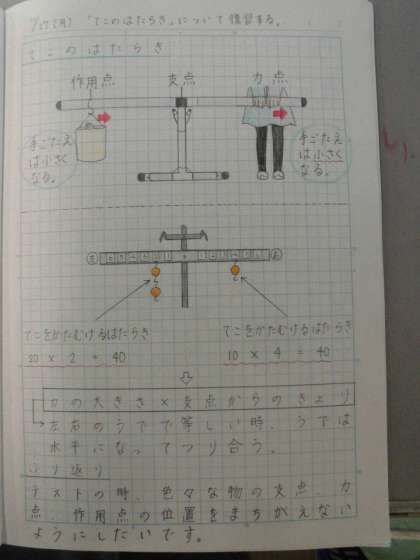 1/27(月)「てこのはたらき」について復習する。
てこのはたらき
作用点 支点 力点
手ごたえ
は小さく
なる。
手ごたえ
は小さく
なる。
左 6 5 4 3 2 1 1 2 3 4 5 6 右
てこをかたむけるはたらき
20 × 2 = 40
てこをかたむけるはたらき
10 × 4 = 40
力の大きさ × 支点からのきょり
左右のうでで等しい時、うでは
水平になってつり合う。
ふり返り
テストの時、色々な物の支点、力
点、作用点の位置をまちがえない
ようにしたいです。